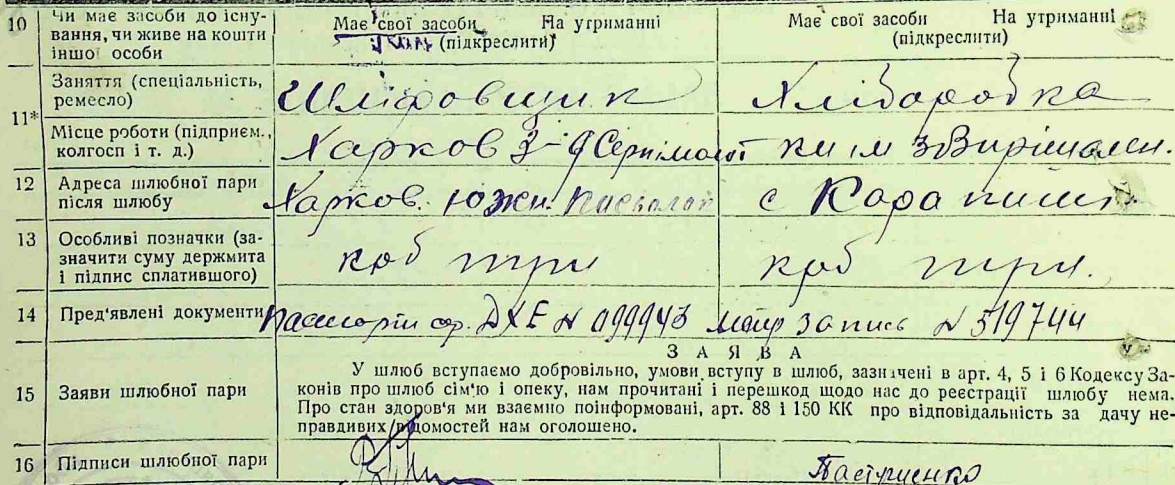 10 Чи має засоби до існу-
вання, чи живе на кошти
іншої особи
Має свої засоби На утриманні
(підкреслити)
Має свої засоби На утриманні
(підкреслити)
11*
Заняття (спеціальність,
ремесло)
Шліфовщик
Хліборобка
Місце роботи (підприєм.,
колгосп і т. д.)
Харков
12 Адреса шлюбної пари
після шлюбу
Харков. Южн. Пасьолок
с Карапиши
13 Особливі позначки (за-
значити суму держмита
і підпис сплатившого)
крб три
крб три.
14 Пред'явлені документи
Паспорти ср. ДХЕ N 099943
запис N 519744
З А Я В А
15 Заяви шлюбної пари
У шлюб вступаємо добровільно, умови вступу в шлюб, зазначені в арт. 4, 5 і 6 Кодексу За-
конів про шлюб сім'ю і опеку, нам прочитані і перешкод щодо нас до реєстрації шлюбу нема.
Про стан здоров'я ми взаємно поінформовані, арт. 88 і 150 КК про відповідальність за дачу не-
правдивих відомостей нам оголошено.
16 Підписи шлюбної пари
Пастушенко